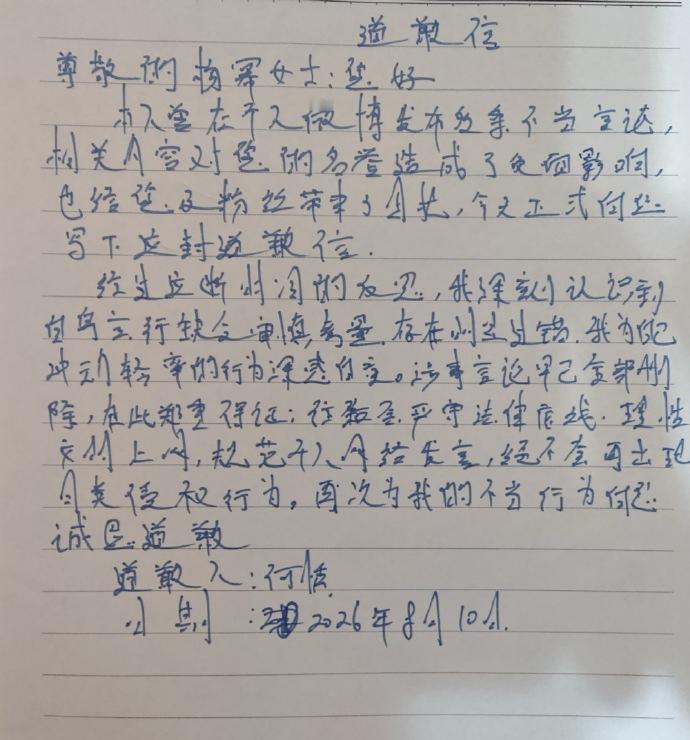 道歉信
尊敬的杨幂女士:您好
本人曾在个人微博发布多条不当言论,
相关内容对您的名誉造成了负面影响,
也给您及粉丝带来了困扰,今天正式向您
写下这封道歉信.
经过这断时间的反思,我深刻认识到
自身言行缺乏审慎考量,存在明显过错.我为自己
冲动轻率的行为深感自责。涉事言论早已全部删
除,在此郑重保证:往后严守法律底线.理性
文明上网,规范个人网络发言,绝不会再出现
同类侵权行为。再次为我的不当行为向您
诚恳道歉
道歉人:何
日期:2026年8月10日.